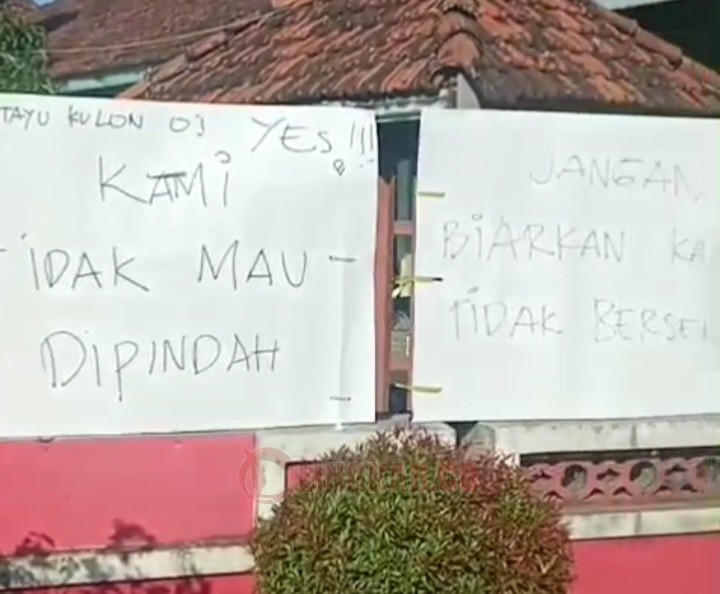 TAYU KULON 03 YES!!!
KAMi
TiDAK MAU
DiPiNDAH
JANGAN
BiARKAN KA
TiDAK BERSE